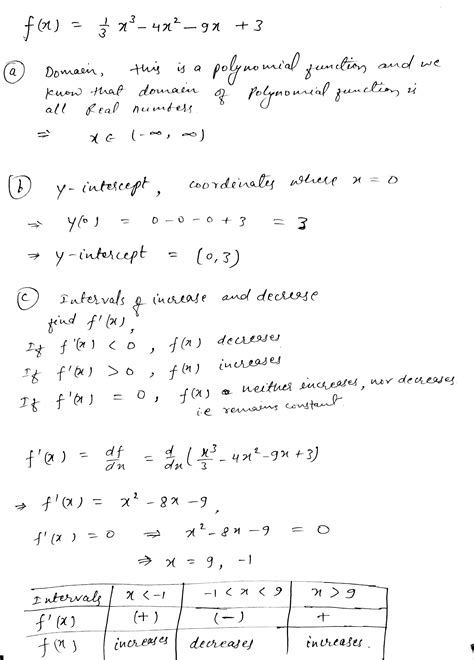 f(x) = 1/3 x³ - 4x² - 9x + 3
(a) Domain, this is a polynomial function and we
know that domain of polynomial function is
all Real numbers.
⇒ x ∈ (-∞, ∞)
(b) y-intercept, coordinates where x = 0
⇒ y(0) = 0 - 0 - 0 + 3 = 3
⇒ y-intercept = (0, 3)
(c) Intervals of increase and decrease
find f'(x),
If f'(x) < 0, f(x) decreases
If f'(x) > 0, f(x) increases
If f'(x) = 0, f(x) neither increases, nor decreases
i.e remains constant.
f'(x) = df/dx = d/dx (x³/3 - 4x² - 9x + 3)
⇒ f'(x) = x² - 8x - 9,
f'(x) = 0 ⇒ x² - 8x - 9 = 0
⇒ x = 9, -1
Intervals x < -1 -1 < x < 9 x > 9
f'(x) (+) (-) +
f(x) increases decreases increases.